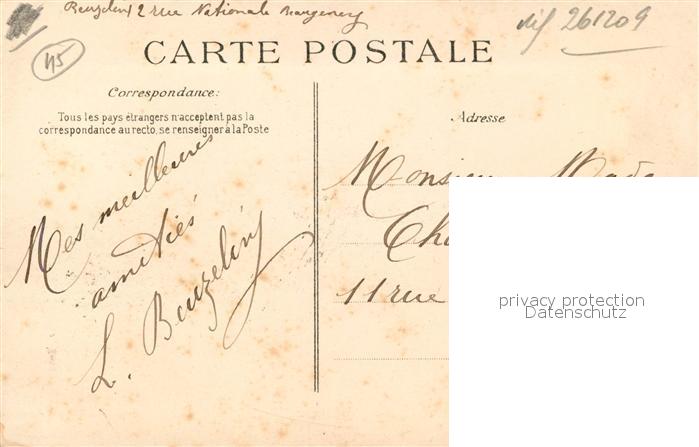 Beuzelin 2 rue Nationale Beaugency
dif 261209
45
CARTE POSTALE
Correspondance:
Tous les pays étrangers n'acceptent pas la
correspondance au recto, se renseigner à la Poste
Mes meilleures
amitiés
L. Beuzelin
Adresse
Monsieur Mada
Cha
11 rue
privacy protection
Datenschutz